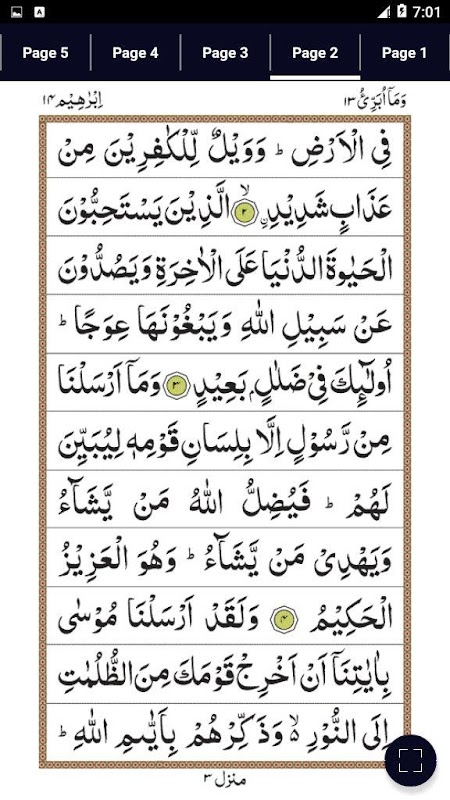 7:01
Page 5 Page 4 Page 3 Page 2 Page 1
وَمَاۤ اُبَرِّئُ ۱۳ اِبْرٰهِيْم ۱۴
فِى الْاَرْضِ ؕ وَوَيْلٌ لِّلْكٰفِرِيْنَ مِنْ
عَذَابٍ شَدِيْدِ ۙ ۲ الَّذِيْنَ يَسْتَحِبُّوْنَ
الْحَيٰوةَ الدُّنْيَا عَلَى الْاٰخِرَةِ وَيَصُدُّوْنَ
عَنْ سَبِيْلِ اللّٰهِ وَيَبْغُوْنَهَا عِوَجًا ؕ
اُولٰٓئِكَ فِىْ ضَلٰلٍۭ بَعِيْدٍ ۳ وَمَاۤ اَرْسَلْنَا
مِنْ رَّسُوْلٍ اِلَّا بِلِسَانِ قَوْمِهٖ لِيُبَيِّنَ
لَهُمْ ؕ فَيُضِلُّ اللّٰهُ مَنْ يَّشَآءُ
وَيَهْدِىْ مَنْ يَّشَآءُ ؕ وَهُوَ الْعَزِيْزُ
الْحَكِيْمُ ۴ وَلَقَدْ اَرْسَلْنَا مُوْسٰى
بِاٰيٰتِنَاۤ اَنْ اَخْرِجْ قَوْمَكَ مِنَ الظُّلُمٰتِ
اِلَى النُّوْرِ ۙ۬ وَذَكِّرْهُمْ بِاَيّٰىمِ اللّٰهِ ؕ
منزل ۳